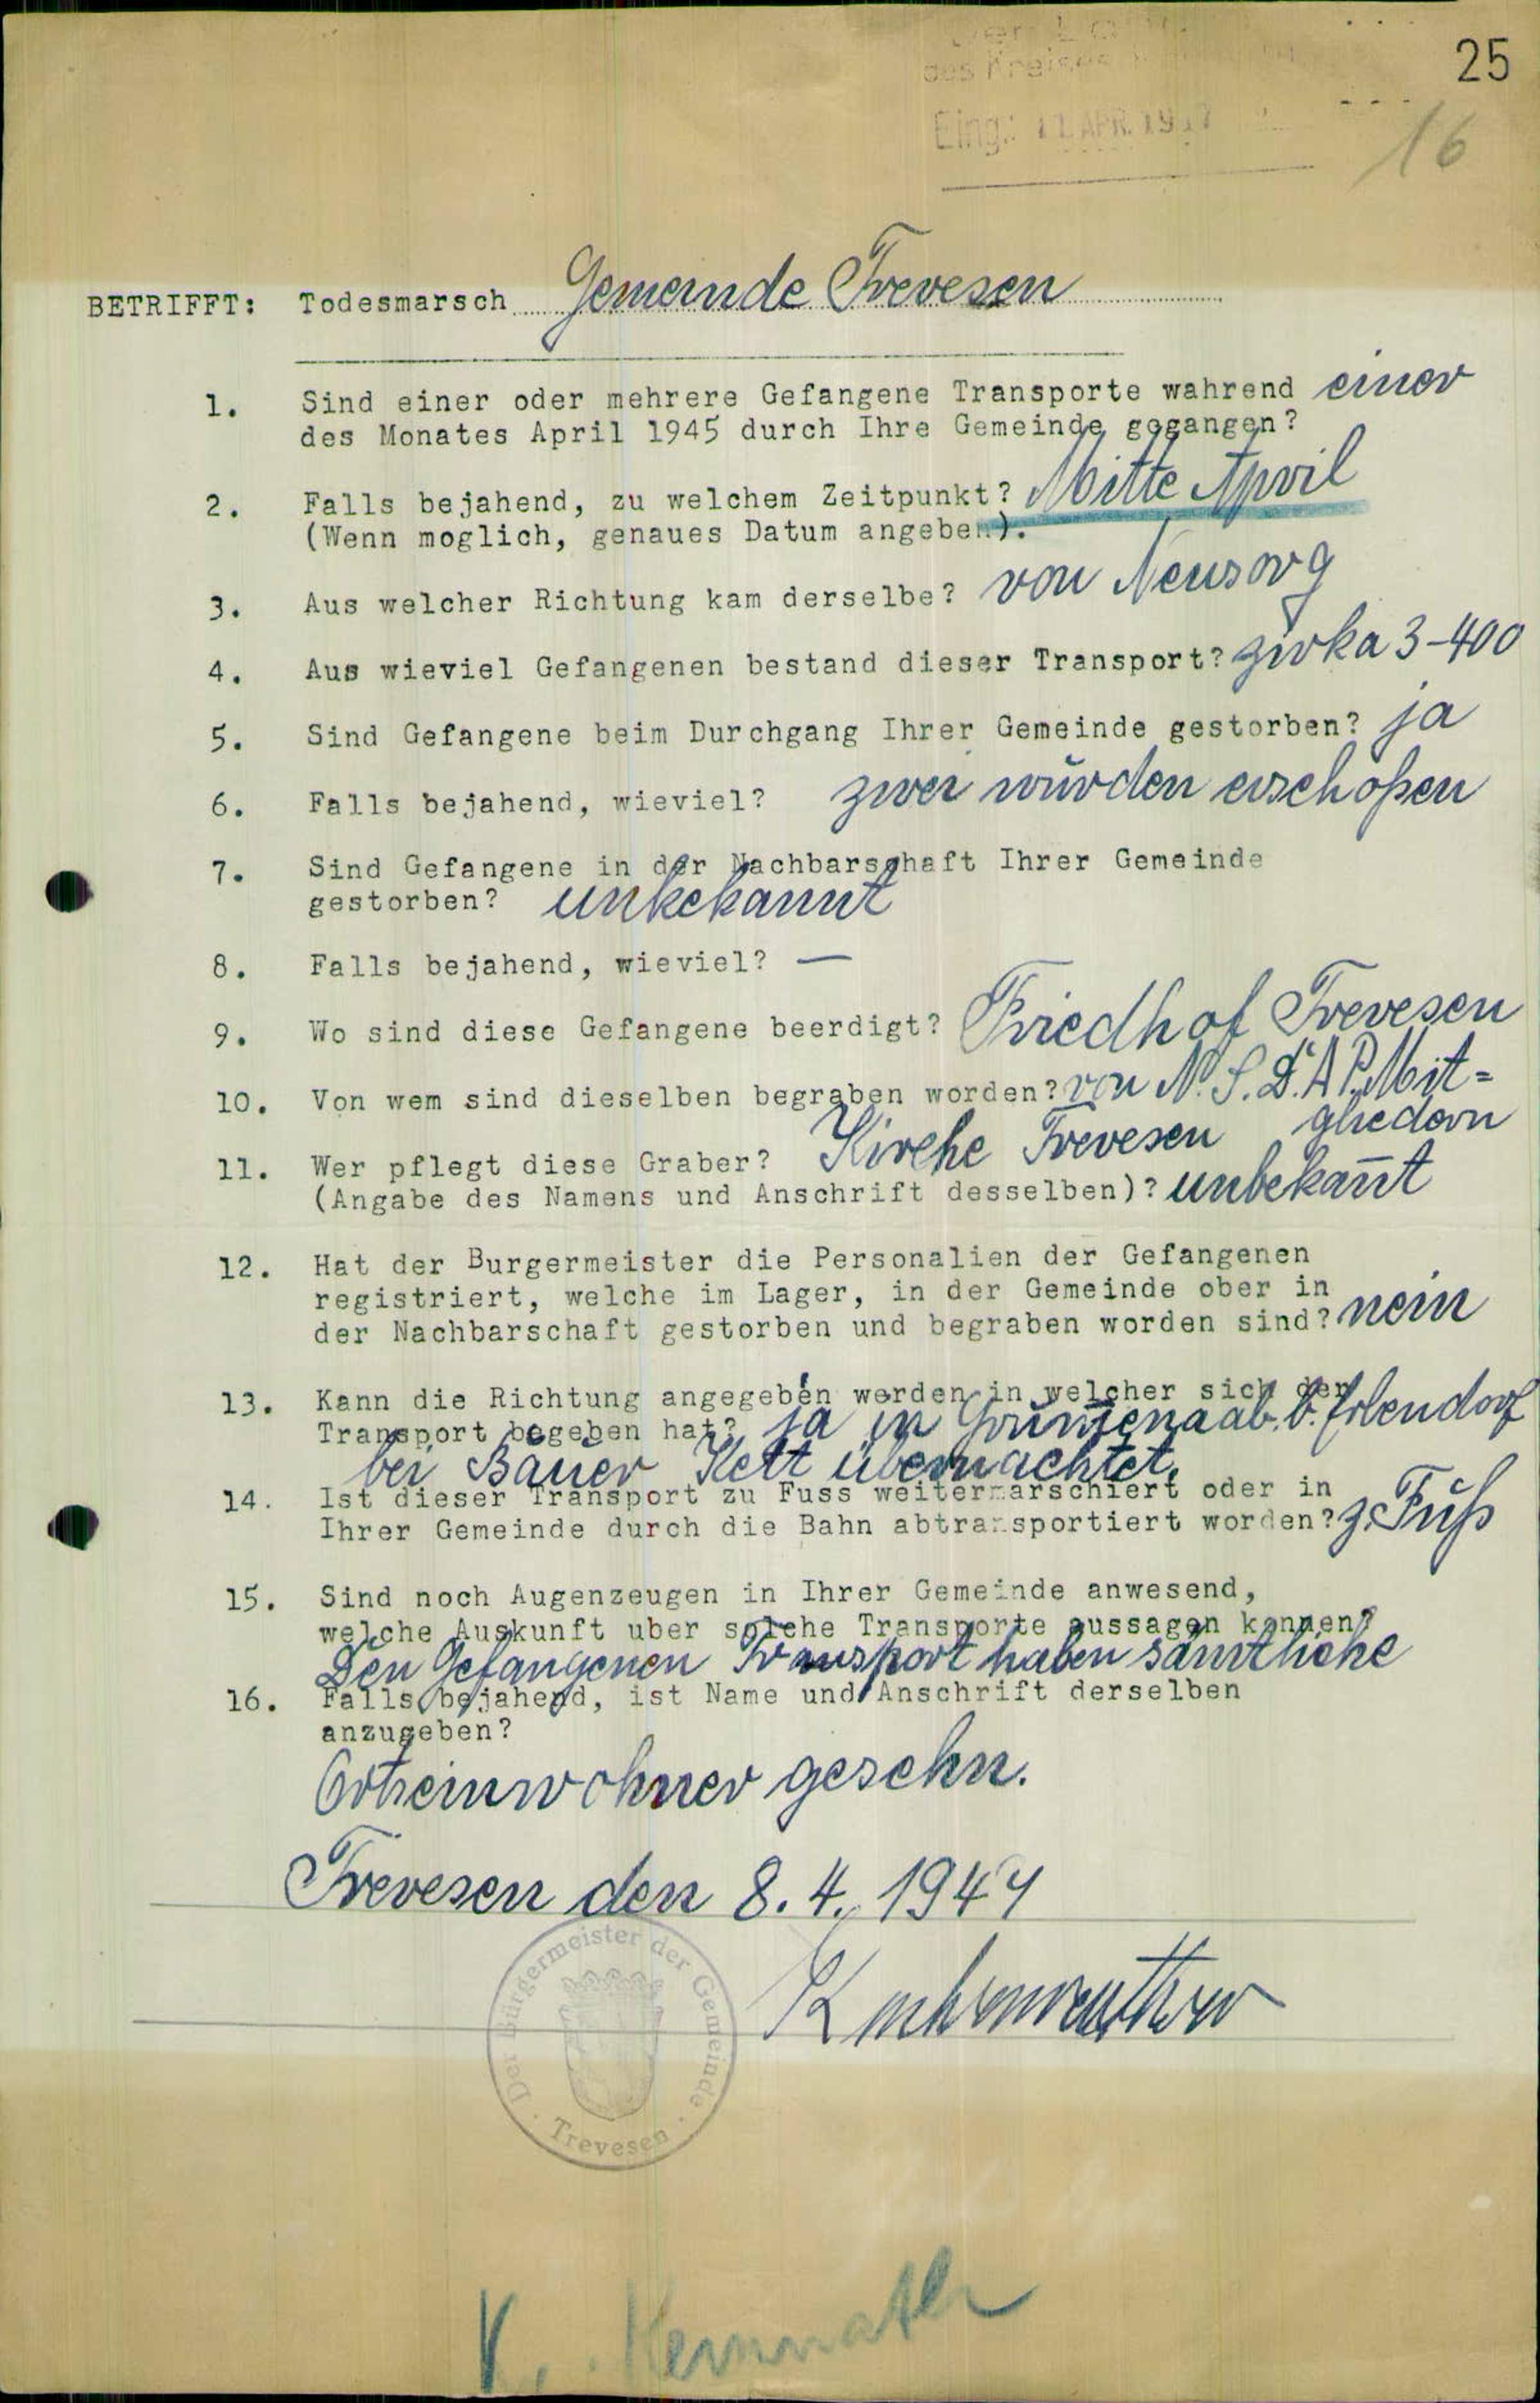 25
des Kreises
Eing.: 11. APR. 1947
16
BETRIFFT: Todesmarsch Gemeinde Trevesen
1. Sind einer oder mehrere Gefangene Transporte wahrend einer
des Monates April 1945 durch Ihre Gemeinde gegangen?
2. Falls bejahend, zu welchem Zeitpunkt? Mitte April
(Wenn moglich, genaues Datum angeben).
3. Aus welcher Richtung kam derselbe? von Neusorg
4. Aus wieviel Gefangenen bestand dieser Transport? zirka 3-400
5. Sind Gefangene beim Durchgang Ihrer Gemeinde gestorben? ja
6. Falls bejahend, wieviel? zwei wurden erschoßen
7. Sind Gefangene in der Nachbarschaft Ihrer Gemeinde
gestorben? unbekannt
8. Falls bejahend, wieviel? —
9. Wo sind diese Gefangene beerdigt? Friedhof Trevesen
10. Von wem sind dieselben begraben worden? von N.S.D.A.P. Mit=
gliedern
11. Wer pflegt diese Graber? Kirche Trevesen
(Angabe des Namens und Anschrift desselben)? unbekan̄t
12. Hat der Burgermeister die Personalien der Gefangenen
registriert, welche im Lager, in der Gemeinde ober in
der Nachbarschaft gestorben und begraben worden sind? nein
13. Kann die Richtung angegeben werden in welcher sich der
Transport begeben hat? ja in b. Erbendorf
bei Bauer Kett übernachtet.
14. Ist dieser Transport zu Fuss weitermarschiert oder in
Ihrer Gemeinde durch die Bahn abtransportiert worden? z. Fuß
15. Sind noch Augenzeugen in Ihrer Gemeinde anwesend,
welche Auskunft uber solche Transporte aussagen konnen?
Den Gefangenen Transport haben sämtliche
16. Falls bejahend, ist Name und Anschrift derselben
anzugeben?
Ortseinwohner gesehn.
Trevesen den 8. 4. 1947
Der Bürgermeister der Gemeinde
Trevesen
K. Kemnath